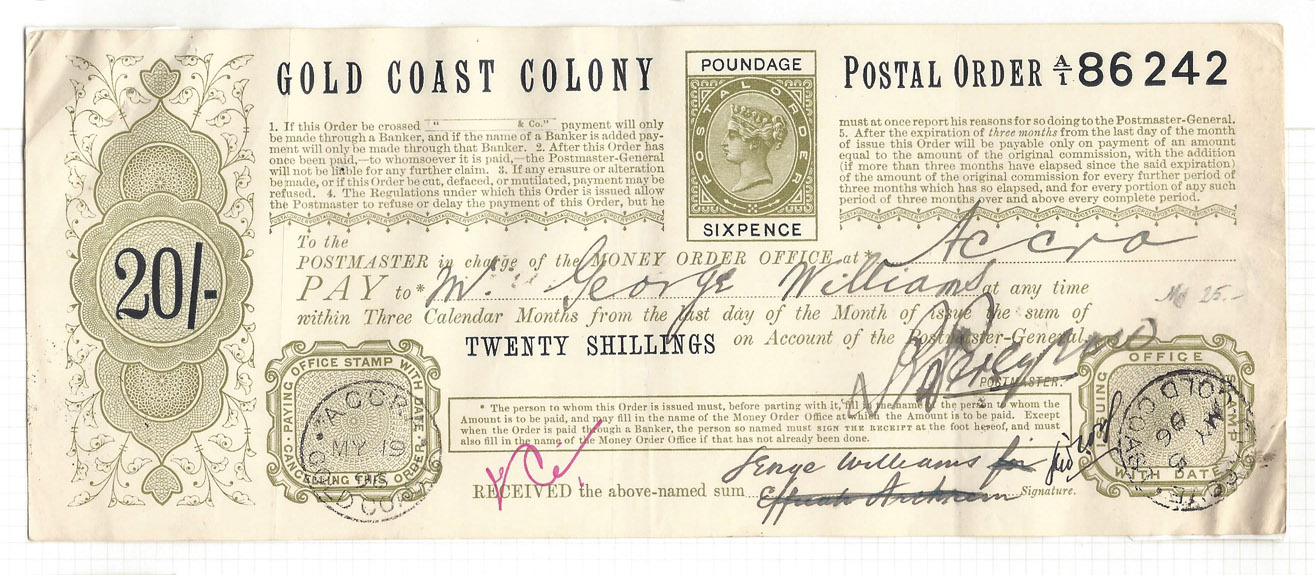 GOLD COAST COLONY
POUNDAGE
POSTAL ORDER
SIXPENCE
POSTAL ORDER A/1 86242
1. If this Order be crossed " & Co." payment will only
be made through a Banker, and if the name of a Banker is added pay-
ment will only be made through that Banker. 2. After this Order has
once been paid,—to whomsoever it is paid,—the Postmaster-General
will not be liable for any further claim. 3. If any erasure or alteration
be made, or if this Order be cut, defaced, or mutilated, payment may be
refused. 4. The Regulations under which this Order is issued allow
the Postmaster to refuse or delay the payment of this Order, but he
must at once report his reasons for so doing to the Postmaster-General.
5. After the expiration of three months from the last day of the month
of issue this Order will be payable only on payment of an amount
equal to the amount of the original commission, with the addition
(if more than three months have elapsed since the said expiration)
of the amount of the original commission for every further period of
three months which has so elapsed, and for every portion of any such
period of three months over and above every complete period.
20/-
To the
POSTMASTER in charge of the MONEY ORDER OFFICE at* Accra
PAY to* Mr. George Williams at any time
25.-
within Three Calendar Months from the last day of the Month of issue the sum of
TWENTY SHILLINGS on Account of the Postmaster-General.
POSTMASTER.
PAYING OFFICE STAMP WITH DATE
CANCELLING THIS ORDER
ACCRA
MY 19
GOLD COAST
* The person to whom this Order is issued must, before parting with it, fill in the name of the person to whom the
Amount is to be paid, and may fill in the name of the Money Order Office at which the Amount is to be paid. Except
when the Order is paid through a Banker, the person so named must SIGN THE RECEIPT at the foot hereof, and must
also fill in the name of the Money Order Office if that has not already been done.
George Williams for
RECEIVED the above-named sum Signature.
ISSUING OFFICE STAMP WITH DATE
GOLD COAST
MY
96